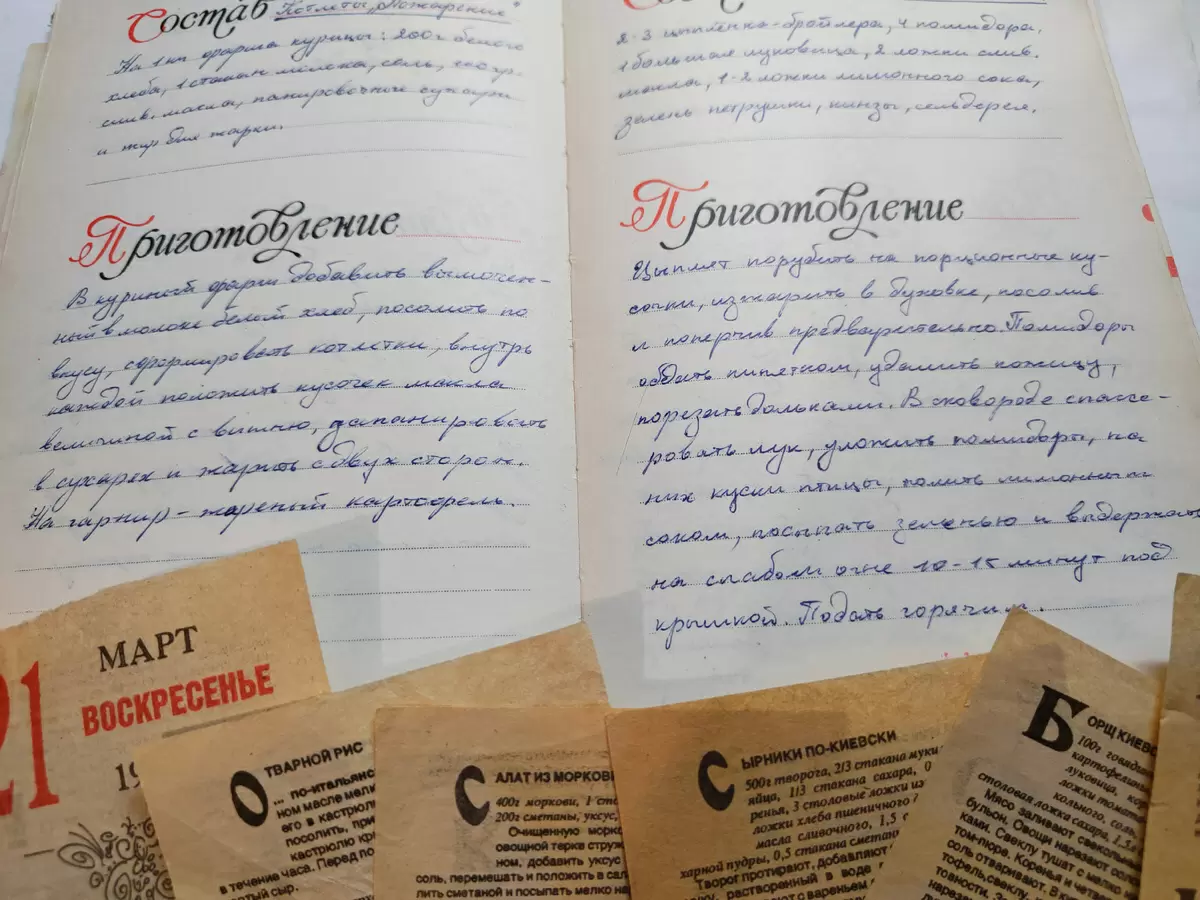 Состав Котлеты „Пожарские"
На 1 кг фарша курицы: 200г белого
хлеба, 1 стакан молока, соль,
слив. масла, панировочные сухари
и жир для жарки.
Приготовление
В куриный фарш добавить вымочен-
ный в молоке белый хлеб, посолить по
вкусу, сформировать котлетки, внутрь
каждой положить кусочек масла
величиной с вишню, запанировать
в сухарях и жарить с двух сторон.
На гарнир – жареный картофель.
2-3 цыпленка-бройлера, 4 помидора,
1 большая луковица, 2 ложки слив.
масла, 1-2 ложки лимонного сока,
зелень петрушки, кинзы, сельдерея.
Приготовление
Цыплят порубить на порционные ку-
сочки, изжарить в духовке, посолив
и поперчив предварительно. Помидоры
обдать кипятком, удалить кожицу,
порезать дольками. В сковороде спассе-
ровать лук, уложить помидоры, на
них куски птицы, полить лимонным
соком, посыпать зеленью и выдержать
на слабом огне 10-15 минут под
крышкой. Подать горячим.
21
МАРТ
ВОСКРЕСЕНЬЕ
19
ОТВАРНОЙ РИС
... по-итальянс
ном масле мелк
его в кастрюл
посолить, при
кастрюлю кр
в течение часа. Перед по
тый сыр.
САЛАТ ИЗ МОРКОВИ
400г моркови, 1 ста
200г сметаны, уксус,
Очищенную морко
овощной терке струж
ном, добавить уксус
соль, перемешать и положить в сал
лить сметаной и посыпать мелко на
СЫРНИКИ ПО-КИЕВСКИ
500г творога, 2/3 стакана муки
яйца, 1/3 стакана сахара, 0
ренья, 3 столовые ложки из
ложки хлеба пшеничного
масла сливочного, 1,5 с
харной пудры, 0,5 стакана сметан
Творог протирают, добавляют
муку, растворенный в воде
ют с вареньем
БОРЩ КИЕВС
100г говядин
картофелин
луковица, кор
ложки томат
кольного, соль,
столовая ложка сахара, 1,5 л
Мясо заливают свекольны
бульон. Овощи нарезают солом
ками. Свеклу тушат с мелко н
том-пюре. Коренья и четвер
соль отваривают. В
тофель, свеклу,
товности. За
нарезан